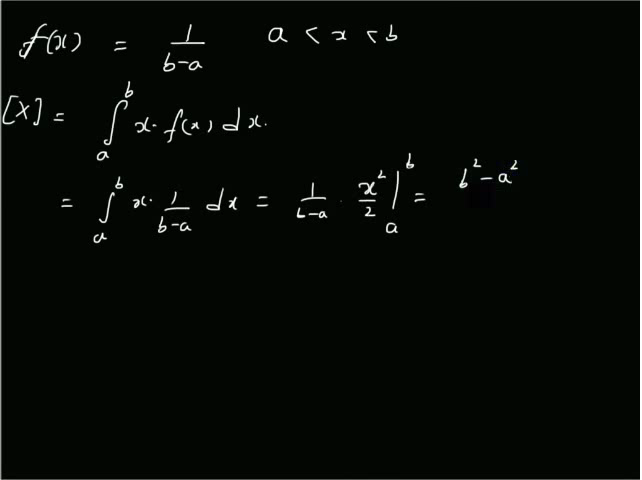 f(x) = 1/(b-a)   a < x < b
[X] = ∫_a^b x · f(x) dx.
= ∫_a^b x · 1/(b-a) dx = 1/(b-a) · x²/2 |_a^b = b² - a²